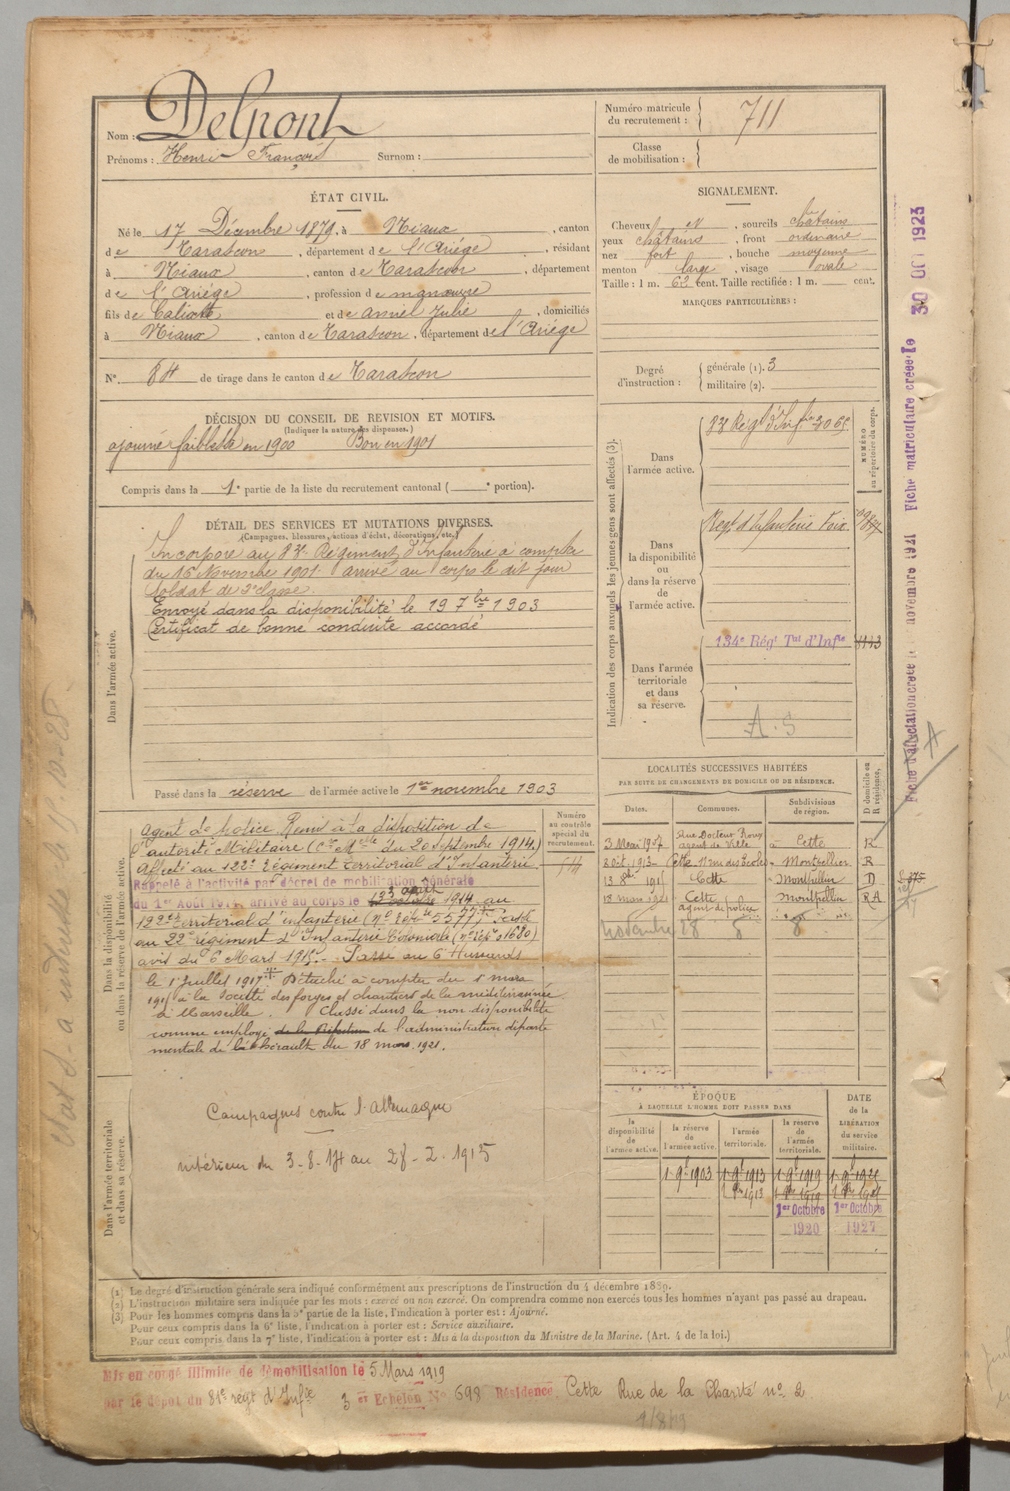 Nom : Delpont
Prénoms : Henri François Surnom :
Numéro matricule du recrutement : 711
Classe de mobilisation :
ÉTAT CIVIL.
Né le 17 Décembre 1879, à Niaux, canton
de Tarascon, département de l'Ariège, résidant
à Niaux, canton de Tarascon, département
de l'Ariège, profession de manœuvre
fils de Calixte et de Julie, domiciliés
à Niaux, canton de Tarascon, département de l'Ariège
N° 84 de tirage dans le canton de Tarascon
SIGNALEMENT.
Cheveux et, sourcils châtains
yeux châtains, front ordinaire
nez fort, bouche moyenne
menton large, visage ovale
Taille : 1 m. 62 cent. Taille rectifiée : 1 m. cent.
MARQUES PARTICULIÈRES :
Degré d'instruction : générale (1). 3
militaire (2).
DÉCISION DU CONSEIL DE REVISION ET MOTIFS.
(Indiquer la nature des dispenses.)
ajourné faiblesse en 1900 Bon en 1901
Compris dans la 1e partie de la liste du recrutement cantonal ( e portion).
DÉTAIL DES SERVICES ET MUTATIONS DIVERSES.
(Campagnes, blessures, actions d'éclat, décorations, etc.)
Dans l'armée active.
Incorporé au 83e Régiment d'Infanterie à compter
du 16 Novembre 1901 arrivé au corps le dit jour
Soldat de 2e classe
Envoyé dans la disponibilité le 19 7bre 1903
Certificat de bonne conduite accordé
Passé dans la réserve de l'armée active le 1er novembre 1903
Indication des corps auxquels les jeunes gens sont affectés (3).
NUMÉRO au répertoire du corps.
Dans l'armée active.
83e Régt d'Infie
Dans la disponibilité ou dans la réserve de l'armée active.
Regt d'Infanterie Foix
Dans l'armée territoriale et dans sa réserve.
134e Régt Tal d'Infie 8143
A. S
Dans la disponibilité ou dans la réserve de l'armée active.
Numéro au contrôle spécial du recrutement.
Agent de police. Remis à la disposition de
l'autorité Militaire (Cre Melle du 20 septembre 1914.)
Affecté au 122e régiment territorial d'Infanterie
Rappelé à l'activité par décret de mobilisation générale
du 1er Août 1914, arrivé au corps le 1914 au
122e territorial d'infanterie Passé
au 22e régiment d'Infanterie Coloniale
avis du 6 Mars 1915. Passé au 6e Hussards
le 1er Juillet 1917 Détaché à compter du 1 mars
à la Société des forges et chantiers de la méditerranée
à Marseille. Classé dans la non disponibilité
comme employé de l'administration départe
mentale de l'Hérault du 18 mars 1921.
Dans l'armée territoriale et dans sa réserve.
Campagnes contre l'Allemagne
intérieur du 3-8-14 au 28-2-1915
LOCALITÉS SUCCESSIVES HABITÉES
PAR SUITE DE CHANGEMENTS DE DOMICILE OU DE RÉSIDENCE.
Dates. Communes. Subdivisions de région. D domicile ou R résidence.
3 Mai 1907 Rue Docteur Roux agent de Ville Cette R
1913 Cette 11 rue des Ecoles Montpellier R
1915 Cette Montpellier D
18 mars 1921 Cette agent de police Montpellier RA
ÉPOQUE
À LAQUELLE L'HOMME DOIT PASSER DANS
la disponibilité de l'armée active. la réserve de l'armée active. l'armée territoriale. la réserve de l'armée territoriale. DATE de la LIBÉRATION du service militaire.
1 9bre 1903 1 9bre 1913 1 9bre 1919
1er Octobre 1920 1er Octobre 1927
(1) Le degré d'instruction générale sera indiqué conformément aux prescriptions de l'instruction du 4 décembre 1889.
(2) L'instruction militaire sera indiquée par les mots : exercé ou non exercé. On comprendra comme non exercés tous les hommes n'ayant pas passé au drapeau.
(3) Pour les hommes compris dans la 5e partie de la liste, l'indication à porter est : Ajourné.
Pour ceux compris dans la 6e liste, l'indication à porter est : Service auxiliaire.
Pour ceux compris dans la 7e liste, l'indication à porter est : Mis à la disposition du Ministre de la Marine. (Art. 4 de la loi.)
Mis en congé illimité de démobilisation le 5 Mars 1919
par le dépôt du 81e régt d'Infie 3 er Echelon N° 698 Résidence Cette Rue de la Charité no 2
Fiche d'affectation créée le novembre 1921 Fiche matriculaire créée le 30 OCT 1923